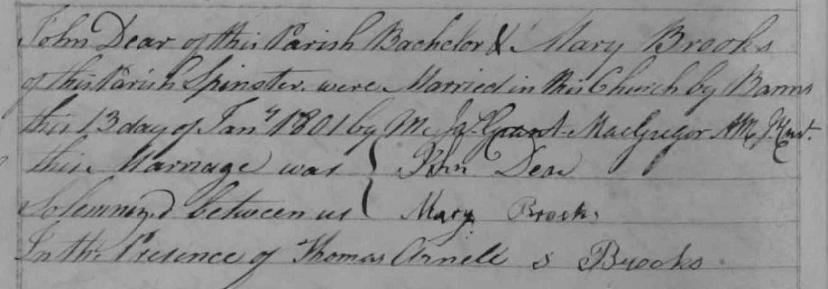 John Dear of this Parish Bachelor & Mary Brooks
of this Parish Spinster were Married in this Church by Banns
this 13 day of Jany 1801 by Me Jas Grant MacGregor AM
this Marriage was John Dear
Solemnized between us Mary Brooks
In the Presence of Thomas Arnell S Brooks